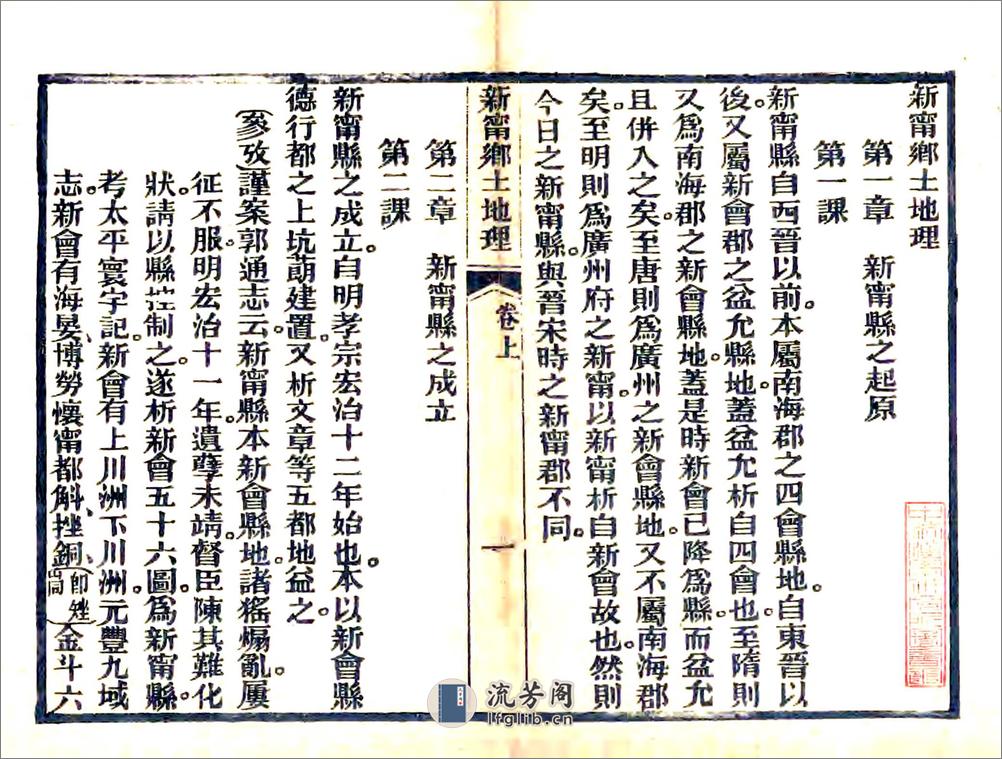 新甯鄉土地理
第一章　新甯縣之起原
第一課
新甯縣自西晉以前。本屬南海郡之四會縣地。自東晉以
後。又屬新會郡之盆允縣地。蓋盆允析自四會也。至隋則
又爲南海郡之新會縣地。蓋是時新會已降爲縣。而盆允
且併入之矣。至唐則爲廣州之新會縣地。又不屬南海郡
矣。至明則爲廣州府之新甯。以新甯析自新會故也。然則
今日之新甯縣。與晉宋時之新甯郡不同。
新甯鄉土地理　卷上　一
第二章　新甯縣之成立
第二課
新甯縣之成立。自明孝宗宏治十二年始也。本以新會縣
德行都之上坑蓢建置。又析文章等五都地益之。
（參攷）謹案郭通志云。新甯縣本新會縣地。諸猺煽亂。屢
征不服。明宏治十一年。遺孽未靖。督臣陳其難化
狀。請以縣控制之。遂析新會五十六圖。爲新甯縣。
考太平寰宇記。新會有上川洲下川洲。元豐九域
志。新會有海晏、博勞、懷甯、都斛、挫銅、（卽矬峒）金斗六
流芳阁
lfglib.cn